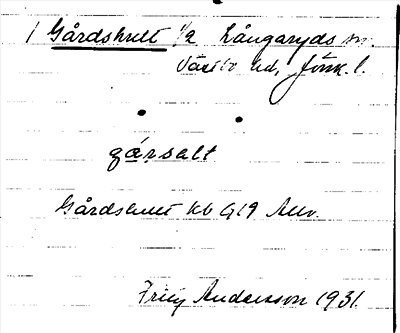 1 Gårdshult 1/2 Långaryds sn.
Västbo hd, Jönk. l.
gársalt
Gårdshult Kb G19 Anv.
Fritz Andersson 1931.